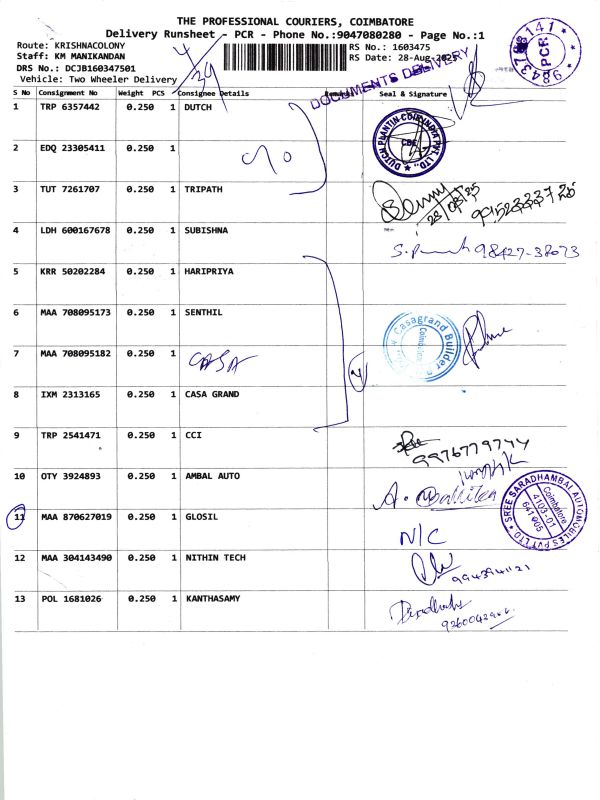 THE PROFESSIONAL COURIERS, COIMBATORE
Delivery Runsheet - PCR - Phone No.:9047080280 - Page No.:1
Route: KRISHNACOLONY
RS No.: 1603475
Staff: KM MANIKANDAN
RS Date: 28-Aug-2025
DRS No.: DCJB160347501
Vehicle: Two Wheeler Delivery
DOCUMENTS DELIVERY
PCR
S No Consignment No Weight PCS Consignee Details Seal & Signature
1 TRP 6357442 0.250 1 DUTCH
DUTCH PLANTIN COIR INDIA PVT. LTD.,
CBE
2 EDQ 23305411 0.250 1
3 TUT 7261707 0.250 1 TRIPATH
28/08/25
4 LDH 600167678 0.250 1 SUBISHNA
98427-38073
5 KRR 50202284 0.250 1 HARIPRIYA
6 MAA 708095173 0.250 1 SENTHIL
Casagrand Builder
7 MAA 708095182 0.250 1 CASA
4
8 IXM 2313165 0.250 1 CASA GRAND
9 TRP 2541471 0.250 1 CCI
9976779744
10 OTY 3924893 0.250 1 AMBAL AUTO
SREE SARADHAMBAL AUTOMOBILES PVT LTD
Coimbatore
4103-01
641 005
11 MAA 870627019 0.250 1 GLOSIL
N/C
12 MAA 304143490 0.250 1 NITHIN TECH
13 POL 1681026 0.250 1 KANTHASAMY